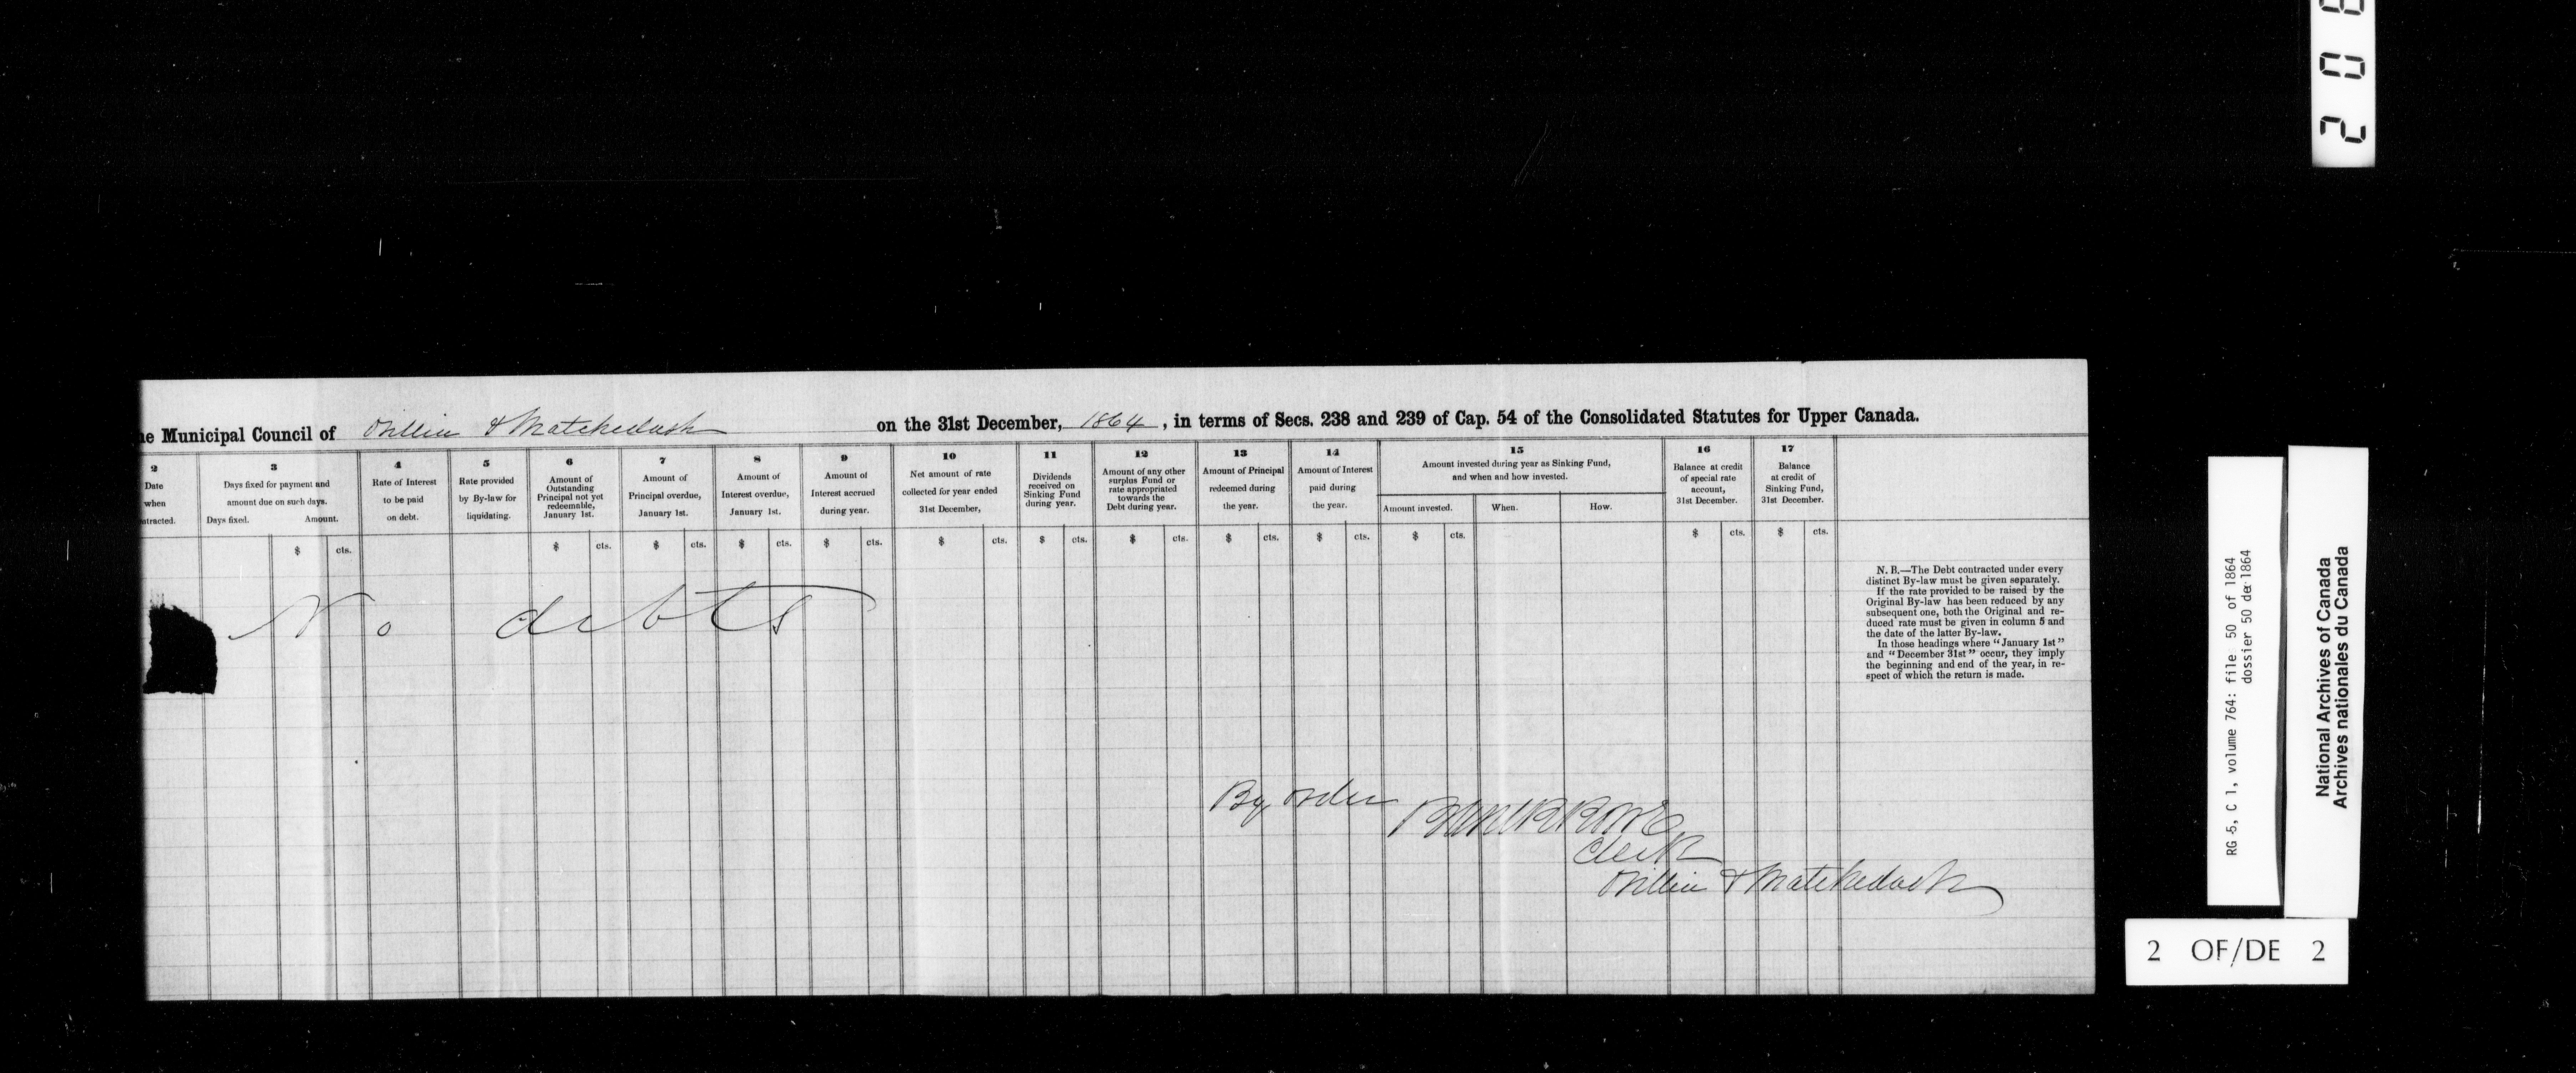 he Municipal Council of Orillia & Matchedash on the 31st December, 1864, in terms of Secs. 238 and 239 of Cap. 54 of the Consolidated Statutes for Upper Canada.
2 Date when ntracted.
3 Days fixed for payment and amount due on such days. Days fixed. Amount.
4 Rate of Interest to be paid on debt.
5 Rate provided by By-law for liquidating.
6 Amount of Outstanding Principal not yet redeemable, January 1st.
7 Amount of Principal overdue, January 1st.
8 Amount of Interest overdue, January 1st.
9 Amount of Interest accrued during year.
10 Net amount of rate collected for year ended 31st December,
11 Dividends received on Sinking Fund during year.
12 Amount of any other surplus Fund or rate appropriated towards the Debt during year.
13 Amount of Principal redeemed during the year.
14 Amount of Interest paid during the year.
15 Amount invested during year as Sinking Fund, and when and how invested. Amount invested. When. How.
16 Balance at credit of special rate account, 31st December.
17 Balance at credit of Sinking Fund, 31st December.
$ cts. $ cts. $ cts. $ cts. $ cts. $ cts. $ cts. $ cts. $ cts. $ cts. $ cts. $ cts. $ cts.
No debts
N. B.—The Debt contracted under every
distinct By-law must be given separately.
If the rate provided to be raised by the
Original By-law has been reduced by any
subsequent one, both the Original and re-
duced rate must be given in column 5 and
the date of the latter By-law.
In those headings where "January 1st"
and "December 31st" occur, they imply
the beginning and end of the year, in re-
spect of which the return is made.
By order
Clerk
Orillia & Matchedash
RG 5, C 1, volume 764: file 50 of 1864
dossier 50 de 1864
National Archives of Canada
Archives nationales du Canada
2 OF/DE 2